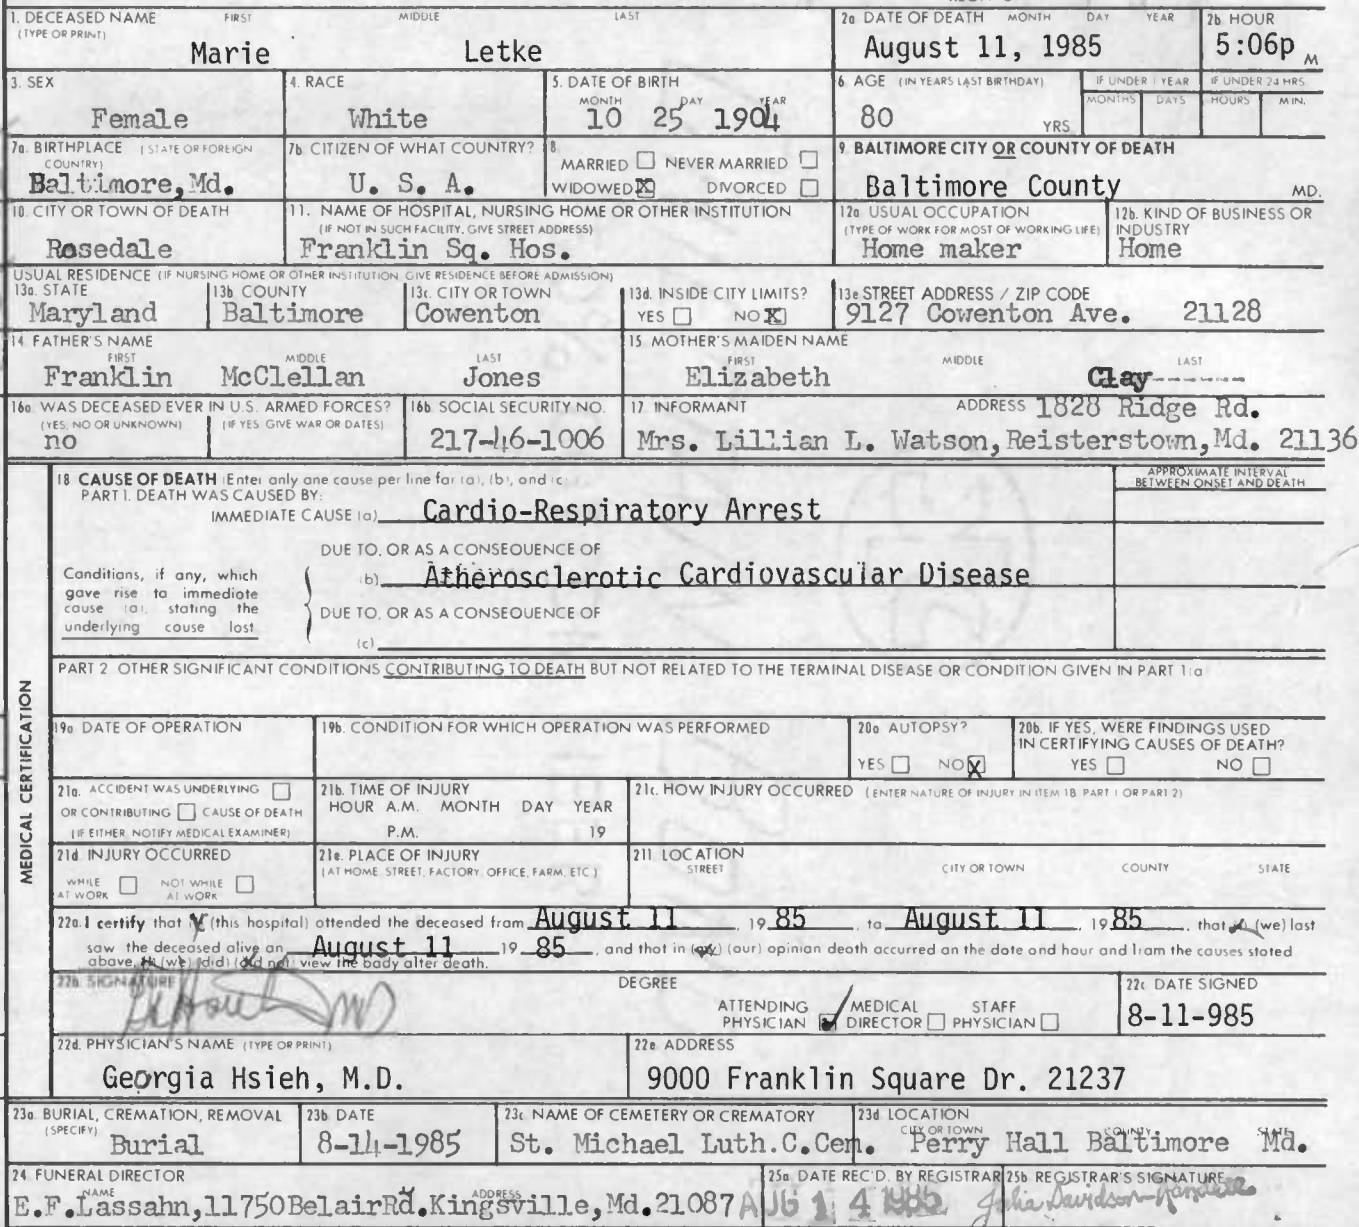 1. DECEASED NAME FIRST MIDDLE LAST
(TYPE OR PRINT)
Marie Letke
2a DATE OF DEATH MONTH DAY YEAR
August 11, 1985
2b HOUR
5:06p M
3. SEX
Female
4. RACE
White
5. DATE OF BIRTH
MONTH DAY YEAR
10 25 1904
6 AGE (IN YEARS LAST BIRTHDAY)
80 YRS
IF UNDER 1 YEAR
MONTHS DAYS
IF UNDER 24 HRS
HOURS MIN.
7a. BIRTHPLACE (STATE OR FOREIGN
COUNTRY)
Baltimore, Md.
7b. CITIZEN OF WHAT COUNTRY?
U. S. A.
8
MARRIED NEVER MARRIED
WIDOWED X DIVORCED
9. BALTIMORE CITY OR COUNTY OF DEATH
Baltimore County MD.
10. CITY OR TOWN OF DEATH
Rosedale
11. NAME OF HOSPITAL, NURSING HOME OR OTHER INSTITUTION
(IF NOT IN SUCH FACILITY, GIVE STREET ADDRESS)
Franklin Sq. Hos.
12a USUAL OCCUPATION
(TYPE OF WORK FOR MOST OF WORKING LIFE)
Home maker
12b. KIND OF BUSINESS OR
INDUSTRY
Home
USUAL RESIDENCE (IF NURSING HOME OR OTHER INSTITUTION GIVE RESIDENCE BEFORE ADMISSION)
13a. STATE
Maryland
13b COUNTY
Baltimore
13c. CITY OR TOWN
Cowenton
13d. INSIDE CITY LIMITS?
YES NO X
13e STREET ADDRESS / ZIP CODE
9127 Cowenton Ave. 21128
14 FATHER'S NAME
FIRST MIDDLE LAST
Franklin McClellan Jones
15 MOTHER'S MAIDEN NAME
FIRST MIDDLE LAST
Elizabeth Clay-------
16a WAS DECEASED EVER IN U.S. ARMED FORCES?
(YES, NO OR UNKNOWN) (IF YES GIVE WAR OR DATES)
no
16b SOCIAL SECURITY NO.
217-46-1006
17 INFORMANT ADDRESS 1828 Ridge Rd.
Mrs. Lillian L. Watson, Reisterstown, Md. 21136
MEDICAL CERTIFICATION
18 CAUSE OF DEATH (Enter only one cause per line for (a), (b), and (c).)
PART I. DEATH WAS CAUSED BY:
IMMEDIATE CAUSE (a) Cardio-Respiratory Arrest
APPROXIMATE INTERVAL
BETWEEN ONSET AND DEATH
DUE TO, OR AS A CONSEQUENCE OF
(b) Atherosclerotic Cardiovascular Disease
Conditions, if any, which
gave rise to immediate
cause (a), stating the
underlying cause last
DUE TO, OR AS A CONSEQUENCE OF
(c)
PART 2 OTHER SIGNIFICANT CONDITIONS CONTRIBUTING TO DEATH BUT NOT RELATED TO THE TERMINAL DISEASE OR CONDITION GIVEN IN PART 1(a)
19a DATE OF OPERATION
19b. CONDITION FOR WHICH OPERATION WAS PERFORMED
20a AUTOPSY?
YES NO X
20b. IF YES, WERE FINDINGS USED
IN CERTIFYING CAUSES OF DEATH?
YES NO
21a. ACCIDENT WAS UNDERLYING
OR CONTRIBUTING CAUSE OF DEATH
(IF EITHER, NOTIFY MEDICAL EXAMINER)
21b. TIME OF INJURY
HOUR A.M. MONTH DAY YEAR
P.M. 19
21c. HOW INJURY OCCURRED (ENTER NATURE OF INJURY IN ITEM 18 PART 1 OR PART 2)
21d INJURY OCCURRED
WHILE AT WORK NOT WHILE AT WORK
21e. PLACE OF INJURY
(AT HOME, STREET, FACTORY, OFFICE, FARM, ETC.)
21f LOCATION
STREET CITY OR TOWN COUNTY STATE
22a. I certify that I (this hospital) attended the deceased from August 11, 19 85, to August 11, 19 85, that I (we) last
saw the deceased alive on August 11 19 85, and that in (my) (our) opinion death occurred on the date and hour and from the causes stated
above, (I) (we) (did) (did not) view the body after death.
22b SIGNATURE MD
DEGREE
ATTENDING PHYSICIAN ✓ MEDICAL DIRECTOR STAFF PHYSICIAN
22c DATE SIGNED
8-11-985
22d. PHYSICIAN'S NAME (TYPE OR PRINT)
Georgia Hsieh, M.D.
22e ADDRESS
9000 Franklin Square Dr. 21237
23a BURIAL, CREMATION, REMOVAL
(SPECIFY)
Burial
23b DATE
8-14-1985
23c NAME OF CEMETERY OR CREMATORY
St. Michael Luth.C.Cem.
23d LOCATION
CITY OR TOWN COUNTY STATE
Perry Hall Baltimore Md.
24 FUNERAL DIRECTOR
NAME ADDRESS
E.F.Lassahn,11750BelairRd.Kingsville,Md.21087
25a DATE REC'D. BY REGISTRAR
AUG 14 1985
25b REGISTRAR'S SIGNATURE